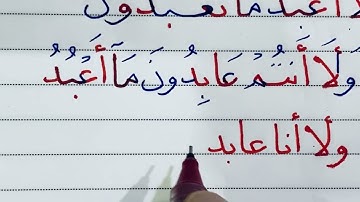 لا أعبد ما تعبدون
وَلَا أَنتُمْ عَابِدُونَ مَا أَعْبُدُ
ولا أنا عابد